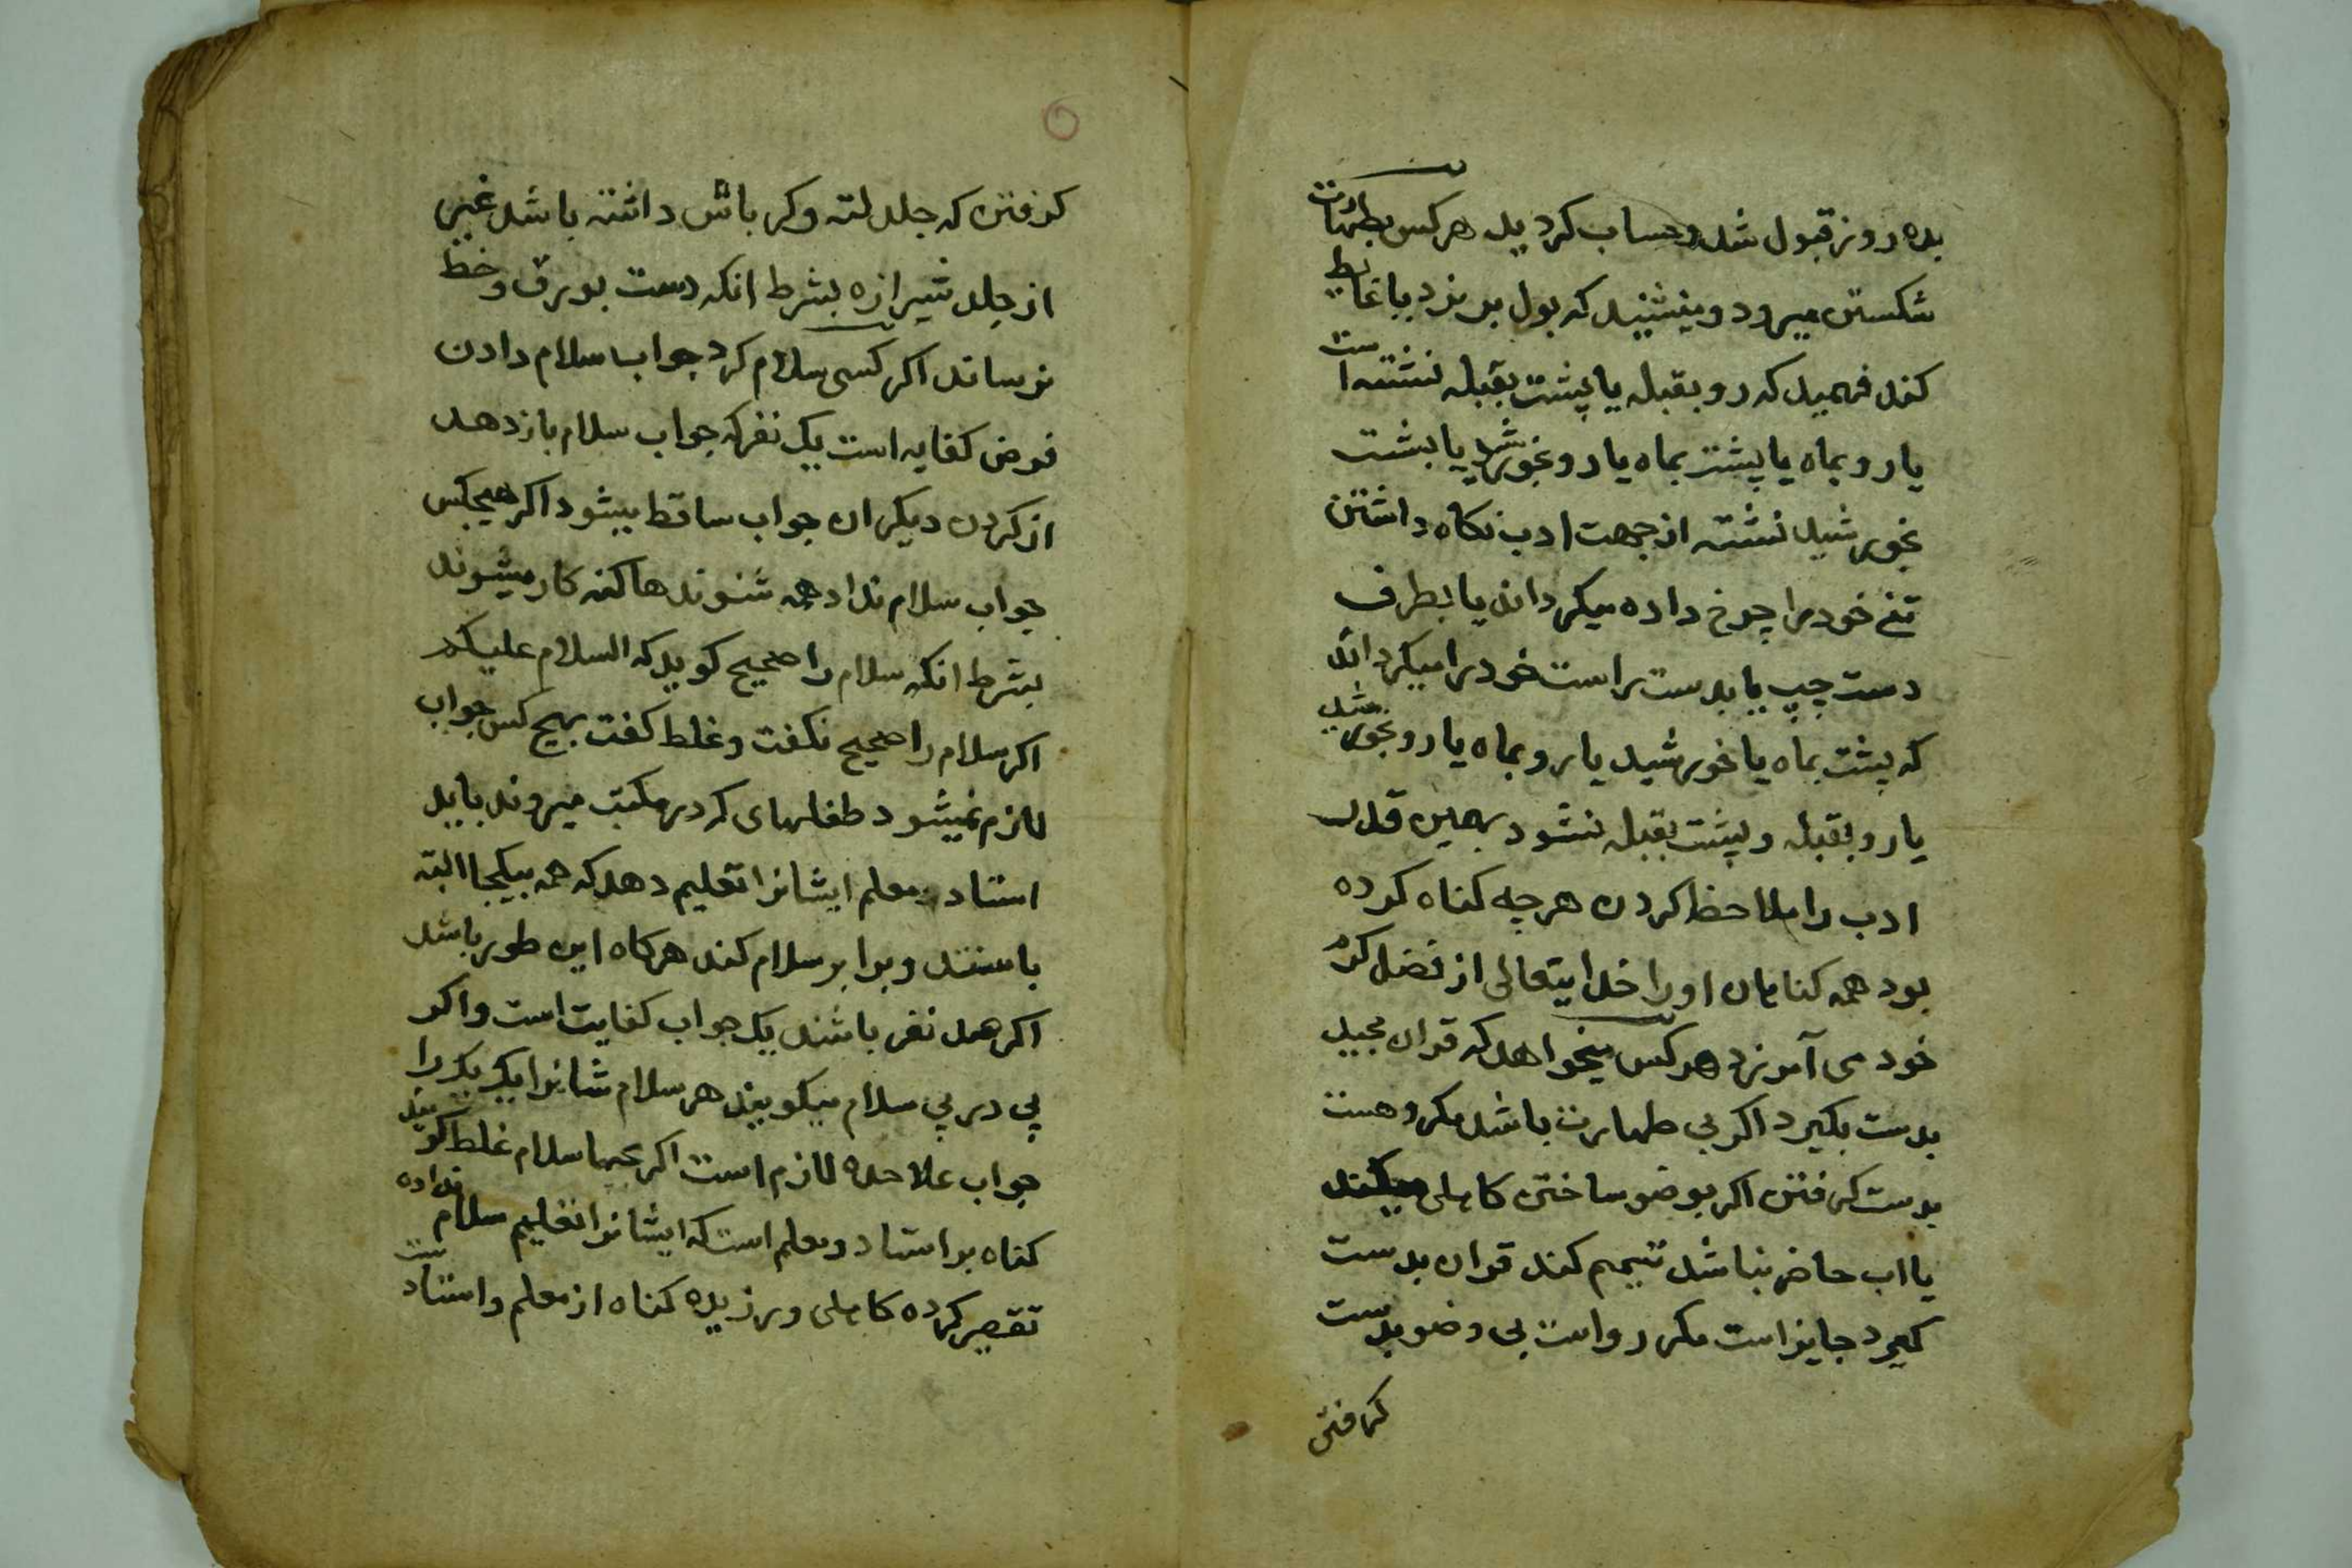 بده روز قبول شد و حساب کردید هر کس بطهارت
شکستن میرود و میشنید که بول بریزد یا غایط
کند فهمید که رو بقبله یا پشت بقبله نشته است
یا رو بماه یا پشت بماه یا رو بخورشید یا بشت
بخورشید نشته از جهت ادب نکاه داشتن
تن خود را چرخ داده میکرداند یا بطرف
دست چپ یا بدست راست خود را میکرداند
که پشت بماه یا خورشید یا رو بماه یا رو بخورشید
یا رو بقبله و پشت بقبله نشود بهمین قدر
ادب را ملاحظ کردن هر چه کناه کرده
بود همه کناهان او را خدایتعالی از فضل کرم
خود می آمرزد هر کس میخواهد که قران مجید
بدست بکیرد اکر بی طهارت باشد مکروهست
بدست کرفتن اکر بوضو ساختن کاهلی میکند
یا اب حاضر نباشد تیمم کند قران بدست
کیرد جایز است مکر رواست بی وضو بدست
کرفتن
کرفتن که جلد لته و کرباش داشته باشد غیر
از جلد شیرازه بشرط انکه دست بورق و خط
نرساند اکر کسی سلام کرد جواب سلام دادن
فرض کفایه است یک نفر که جواب سلام باز دهد
از کردن دیکران جواب ساقط میشود اکر هیچکس
جواب سلام نداد همه شنوندها کنه کار میشوند
بشرط انکه سلام را صحیح کوید که السلام علیکم
اکر سلام را صحیح نکفت و غلط کفت بهیچ کس جواب
لازم نمیشود طفلهای که در مکتب میروند باید
استاد و معلم ایشانرا تعلیم دهد که همه بیکجا البته
باستند و برابر سلام کند هرکاه این طور باشد
اکر صد نفر باشند یک جواب کفایت است و اکر
پی در پی سلام میکویند هر سلام شانرا یک یک را
جواب علاحده لازم است اکر بچها سلام غلط کویند
کناه بر استاد و معلم است که ایشانرا تعلیم سلام نداده
تقصیر کرده کاهلی ورزیده کناه از معلم و استاد ست